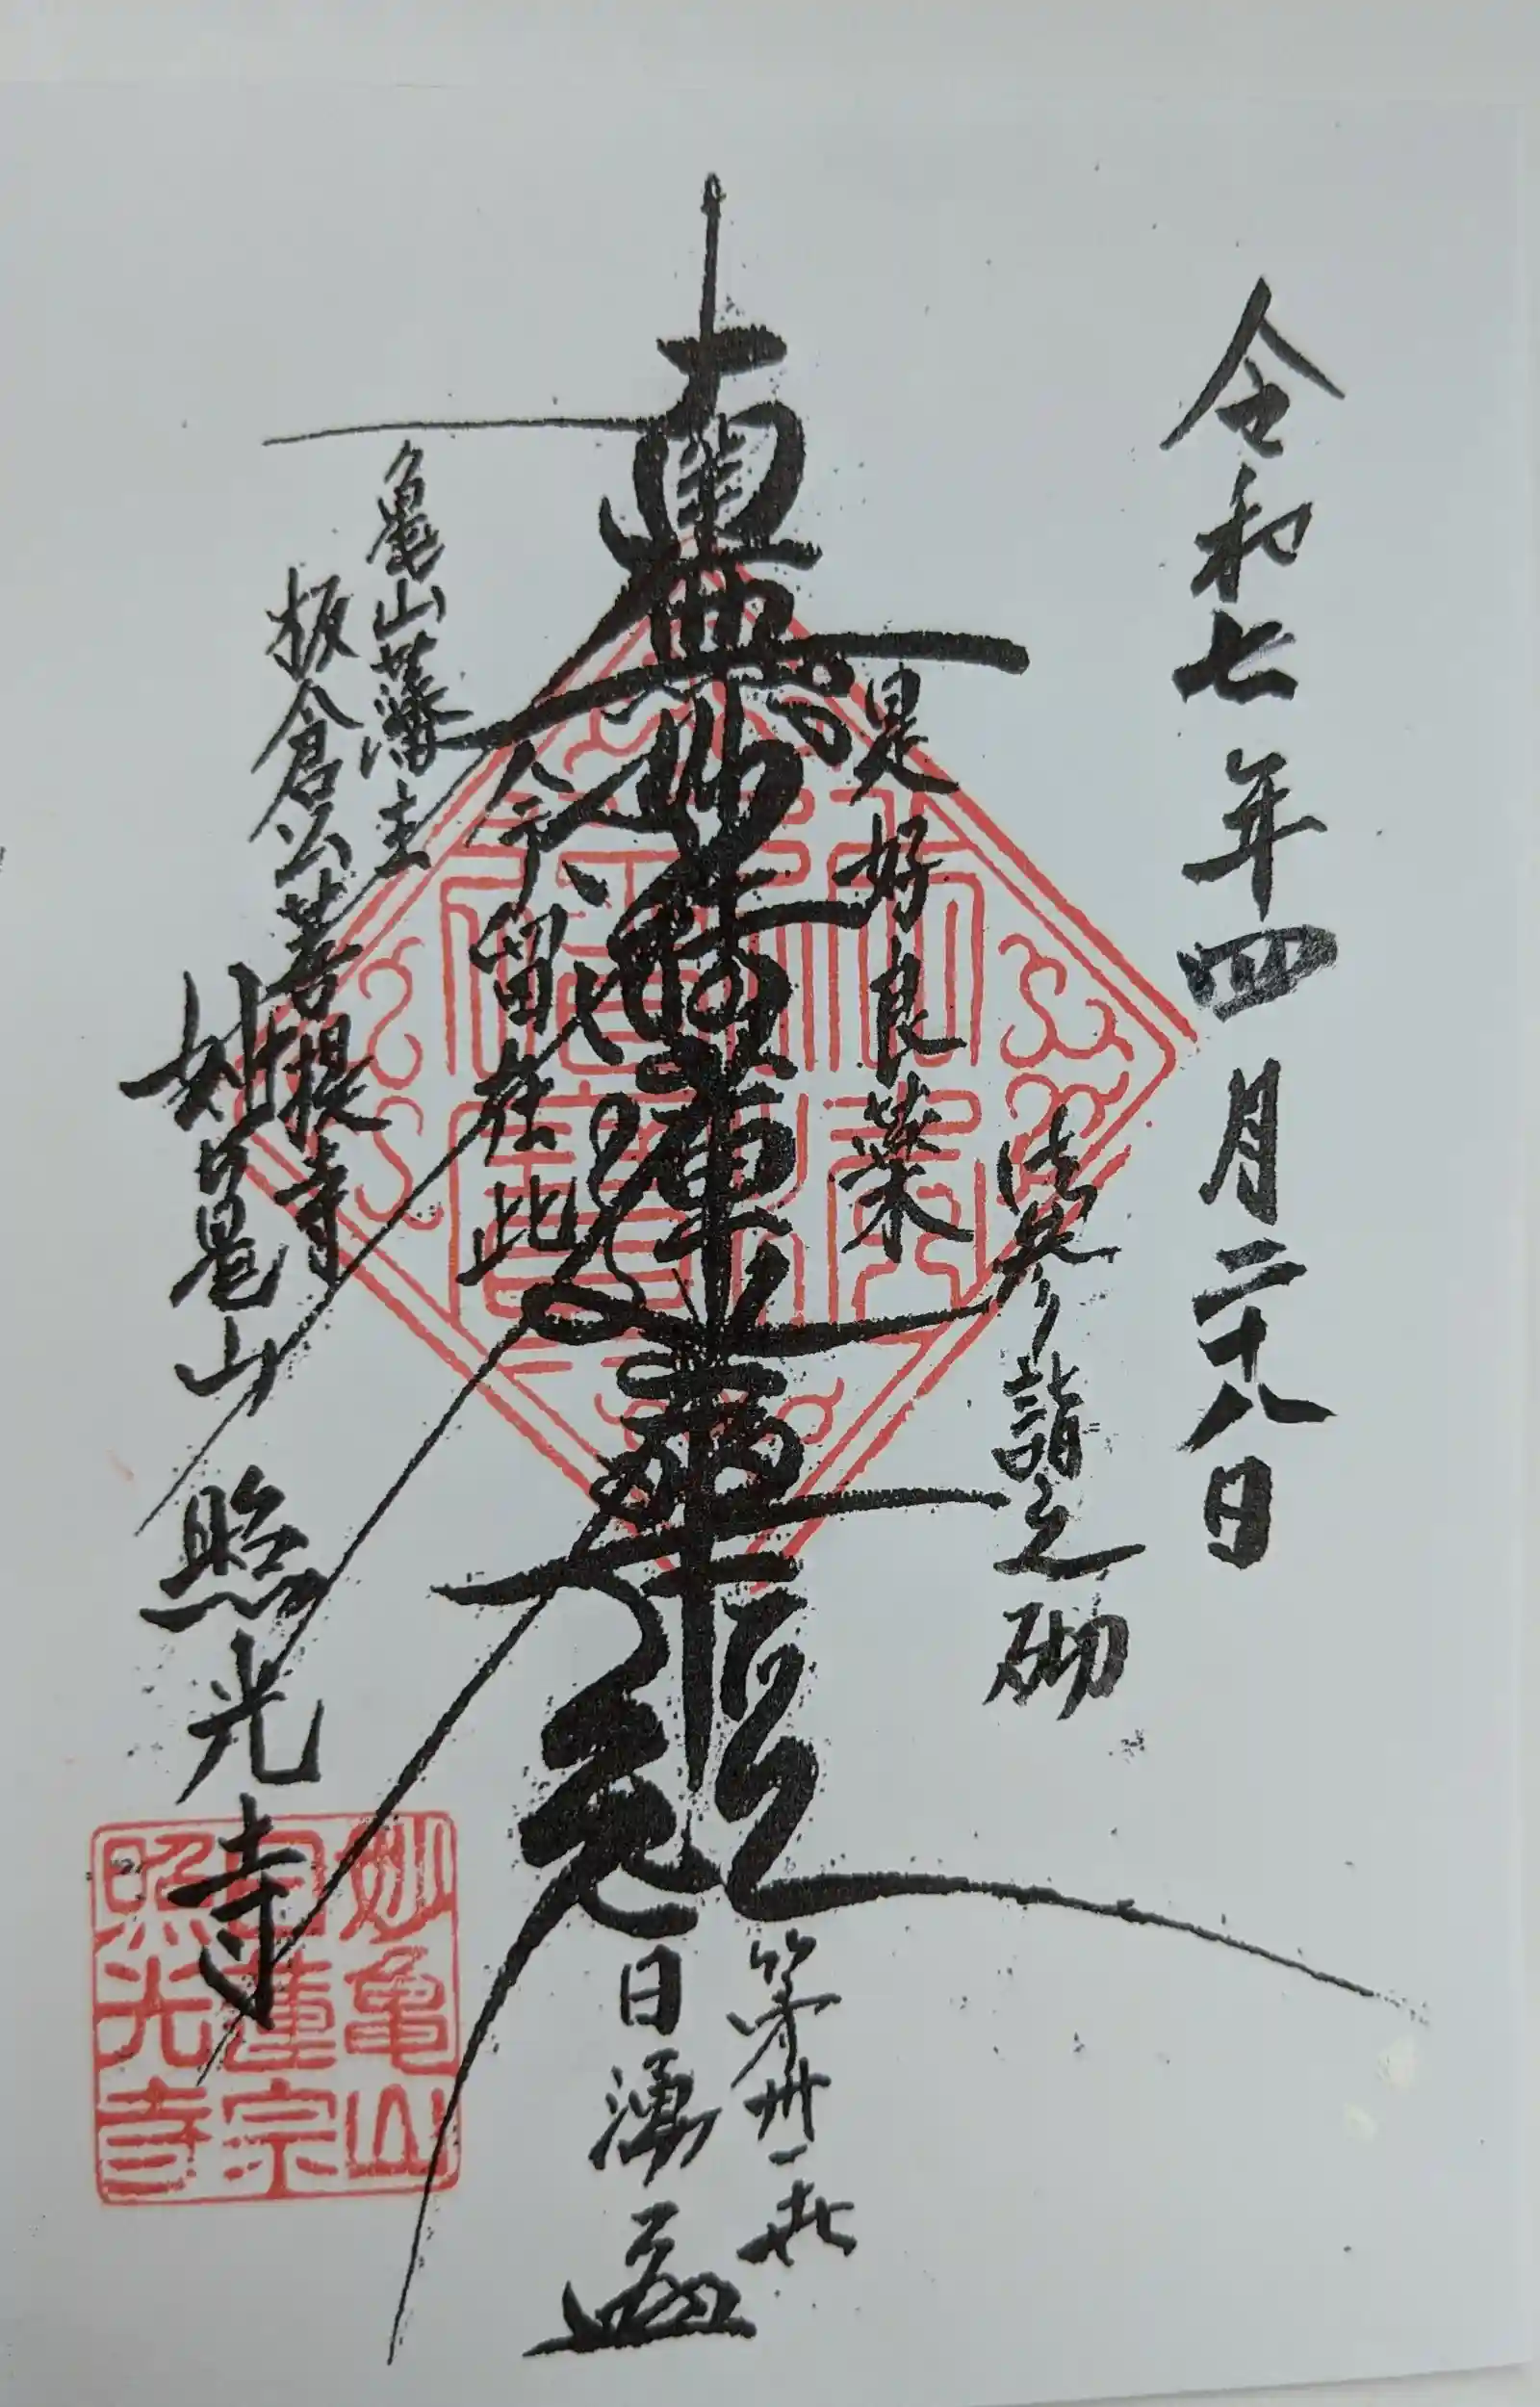 令和七年四月二十八日
法井参詣之砌
是好良薬
南無妙法蓮華経
今留在此
第卅一世
日湧
亀山藩主
板倉公菩提寺
妙亀山
照光寺
妙亀山
日蓮宗
照光寺